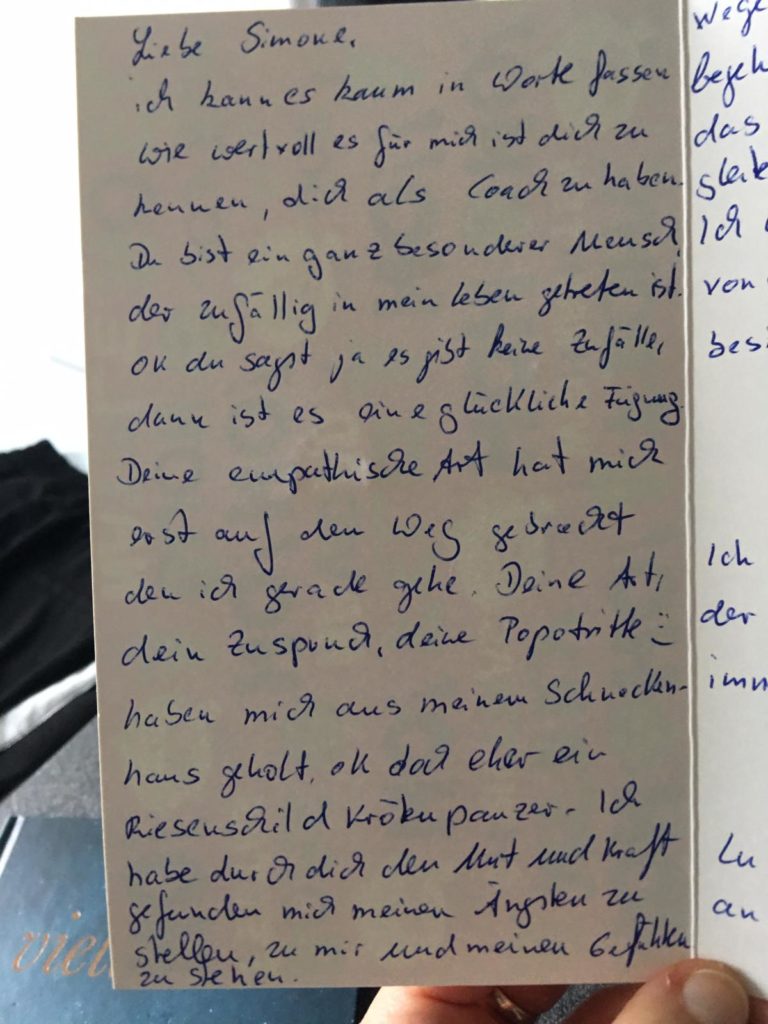 Liebe Simone,
ich kann es kaum in Worte fassen
wie wertvoll es für mich ist dich zu
kennen, dich als Coach zu haben.
Du bist ein ganz besonderer Mensch,
der zufällig in mein Leben getreten ist.
ok du sagst ja es gibt keine Zufälle,
dann ist es eine glückliche Fügung.
Deine empathische Art hat mich
erst auf den Weg gebracht
den ich gerade gehe. Deine Art,
dein Zuspruch, deine Popotritte :)
haben mich aus meinem Schnecken-
haus geholt, ok doch eher ein
Riesenschildkrötenpanzer. Ich
habe durch dich den Mut und Kraft
gefunden mich meinen Ängsten zu
stellen, zu mir und meinen Gefühlen
zu stehen.
Wege
begeh
das
Ich
von
besi
Ich
der
imm
an
viel